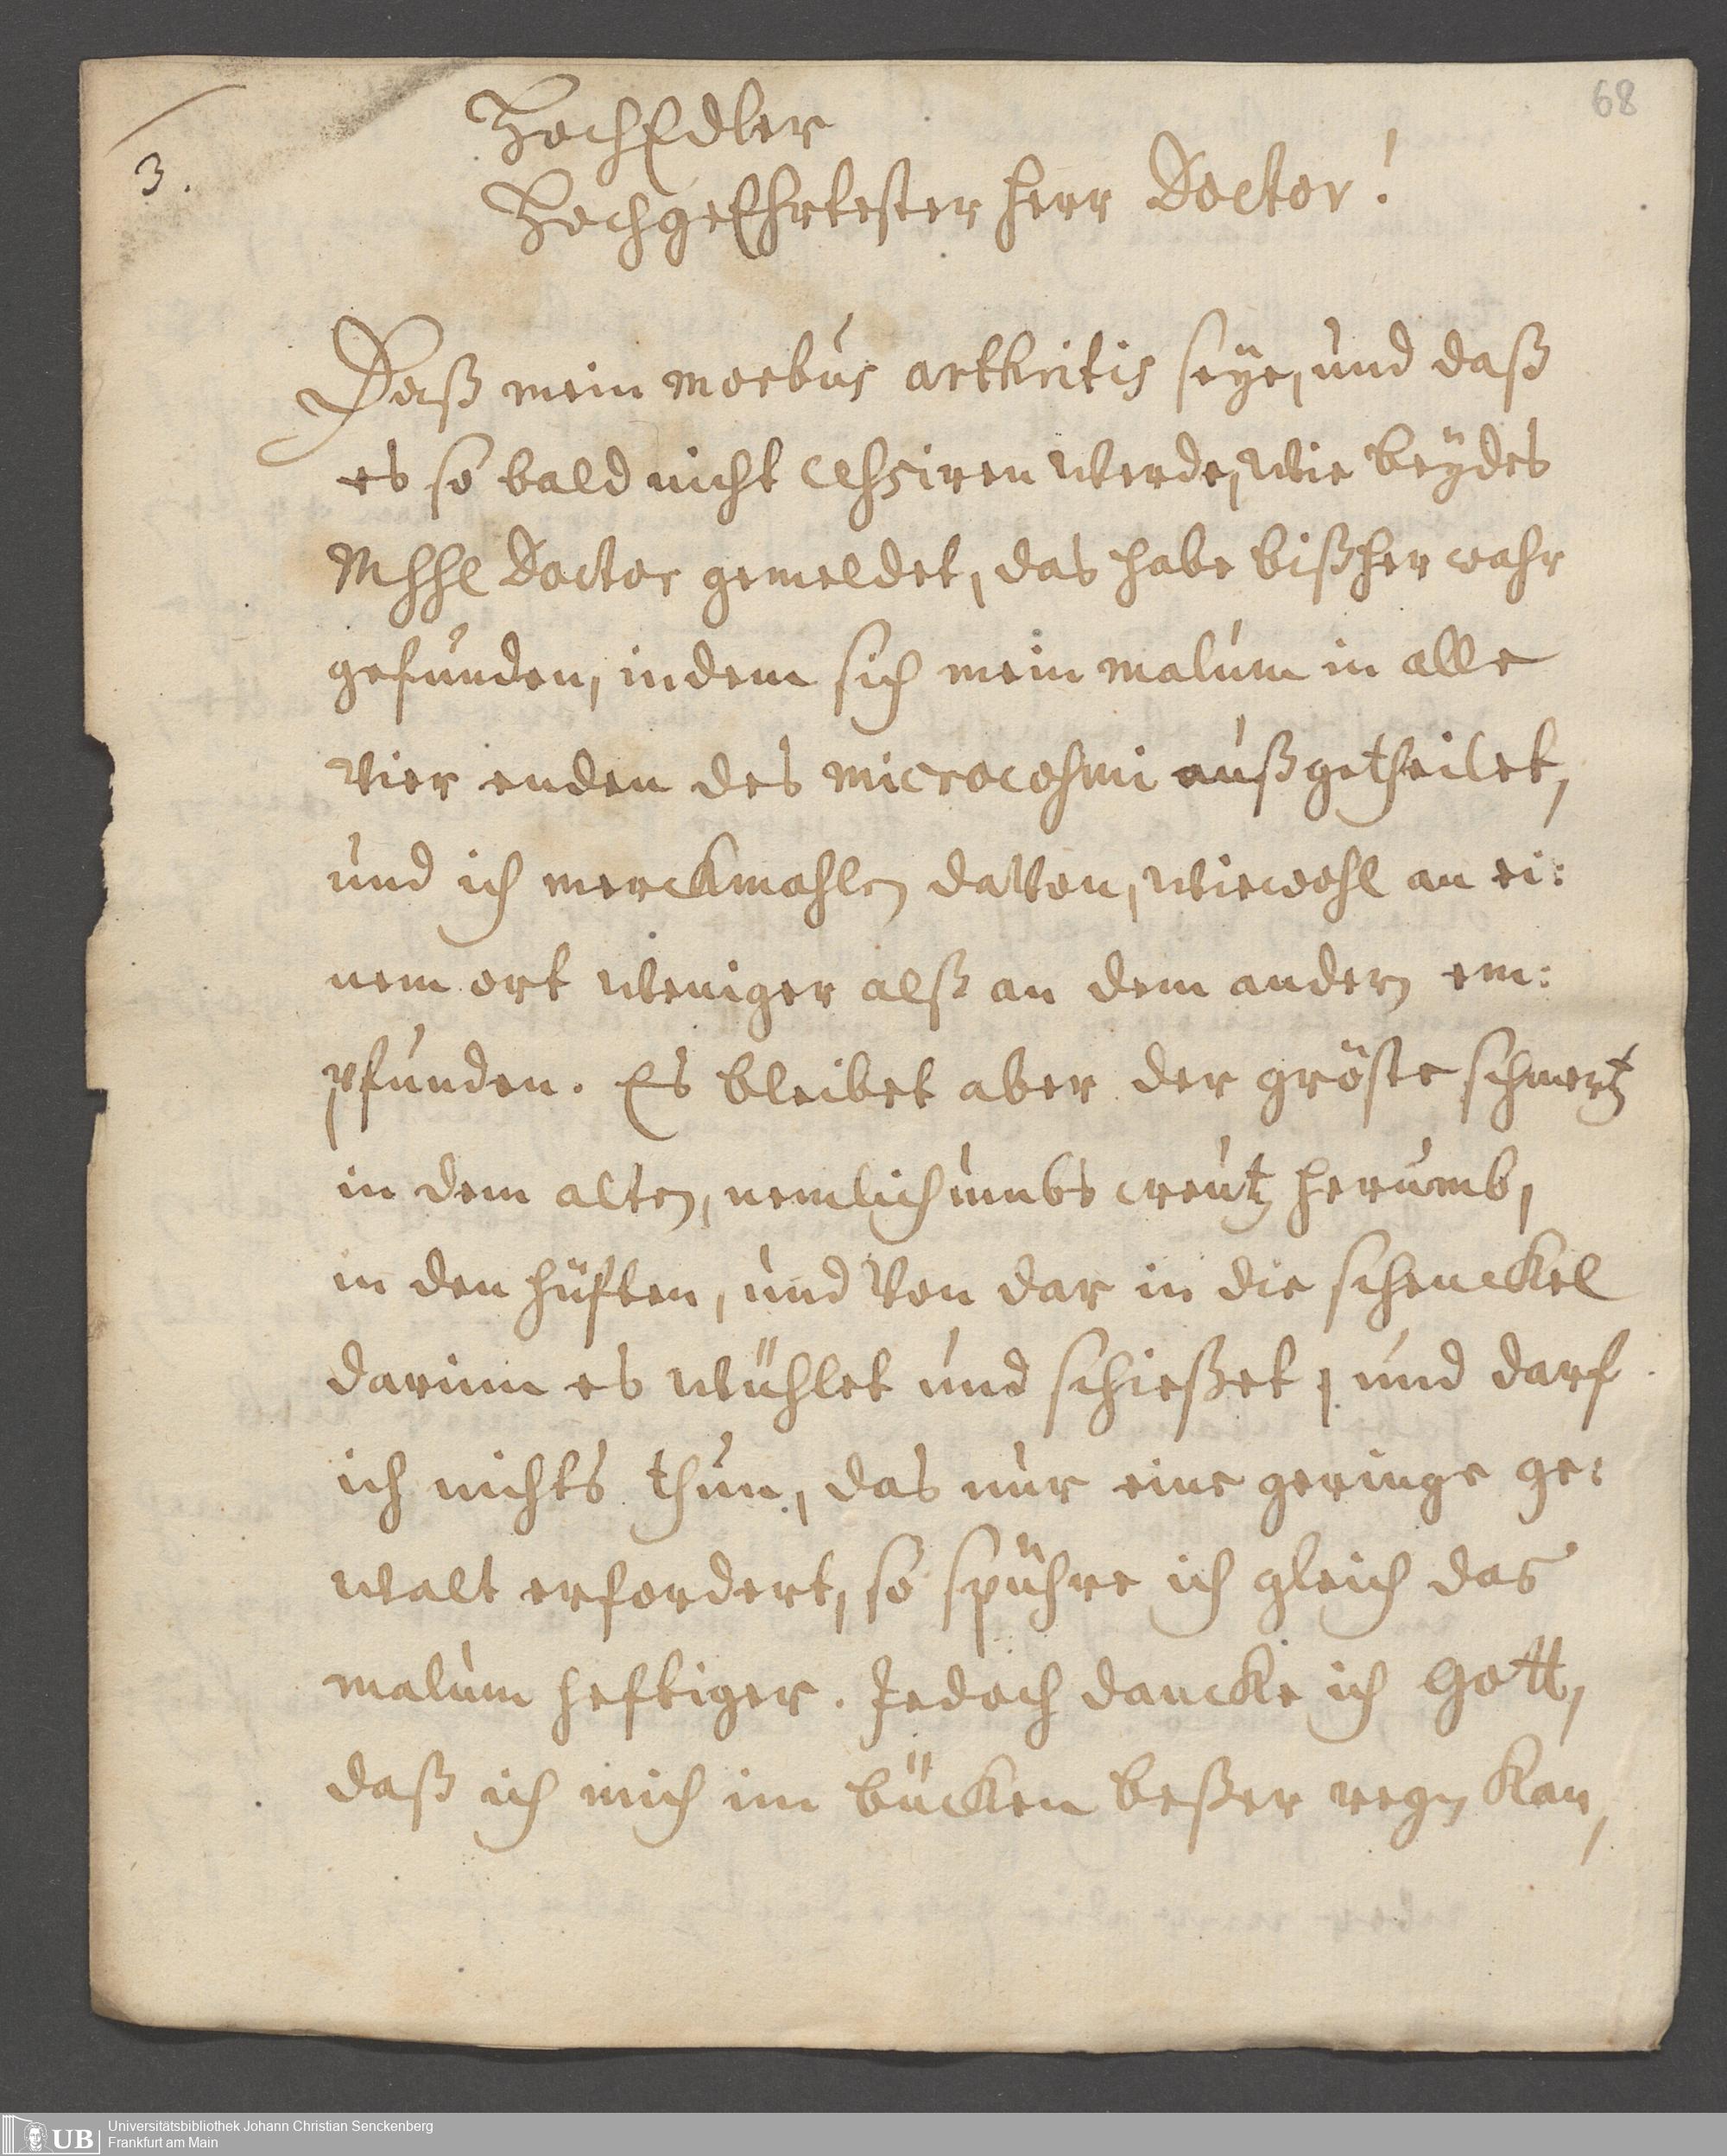 68
3.
HochEdler
HochgeEhrtester Herr Doctor!
Daß mein morbus arthritis seÿe, und daß
es so bald nicht cessiren werde, wie beÿdes
MhhE Doctor gemeldet, das habe bißher wahr
gefunden, indem sich mein malum in alle
vier enden des microcosmi außgetheilet,
und ich merckmahlen davon, wiewohl an ei:
nem ort weniger alß an dem andern em:
pfunden. Es bleibet aber der gröste schmertz
in dem alten, nemlich umbs creutz herumb,
in den hüften, und von dar in die schenckel
darinn es wühlet und schießet, und darf
ich nichts thun, das nur eine geringe ge:
walt erfordert, so spühre ich gleich das
malum heftiger. Jedoch dancke ich Gott,
daß ich mich im bücken beßer regen kan,
UB
Universitätsbibliothek Johann Christian Senckenberg
Frankfurt am Main